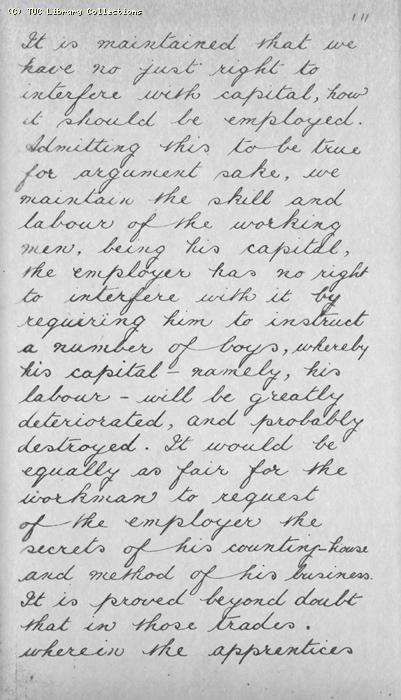 (C) TUC Library Collections
111
It is maintained that we
have no just right to
interfere with capital, how
it should be employed.
Admitting this to be true
for argument sake, we
maintain the skill and
labour of the working
men, being his capital,
the employer has no right
to interfere with it by
requiring him to instruct
a number of boys, whereby
his capital - namely, his
labour - will be greatly
deteriorated, and probably
destroyed. It would be
equally as fair for the
workman to request
of the employer the
secrets of his counting-house
and method of his business.
It is proved beyond doubt
that in those trades.
wherein the apprentices